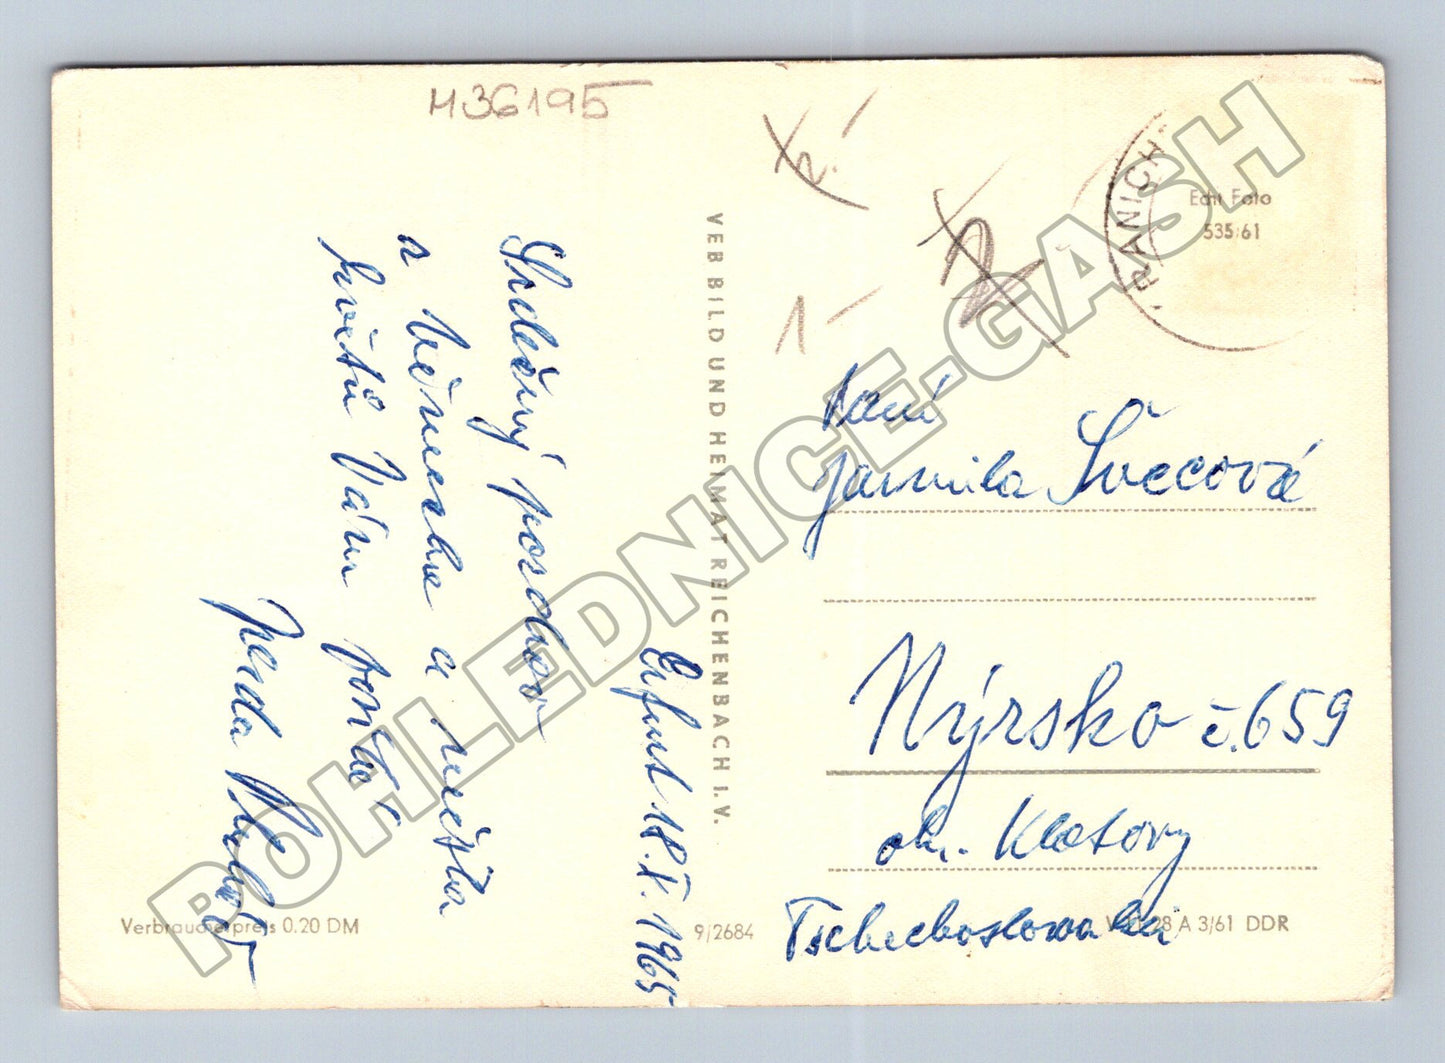 H36195
Srdečný pozdrav
z německa a města
květů Vám posílá
Jarda
Erfurt 18.X.1965
VEB BILD UND HEIMAT REICHENBACH I. V.
RANICH
Echt Foto
535/61
1-
Paní
Jarmila Švecová
Nýrsko č.659
okr. Klatovy
Tschechoslowakei
Verbraucherpreis 0.20 DM
9/2684
28 A 3/61 DDR
POHLEDNICE-GASH